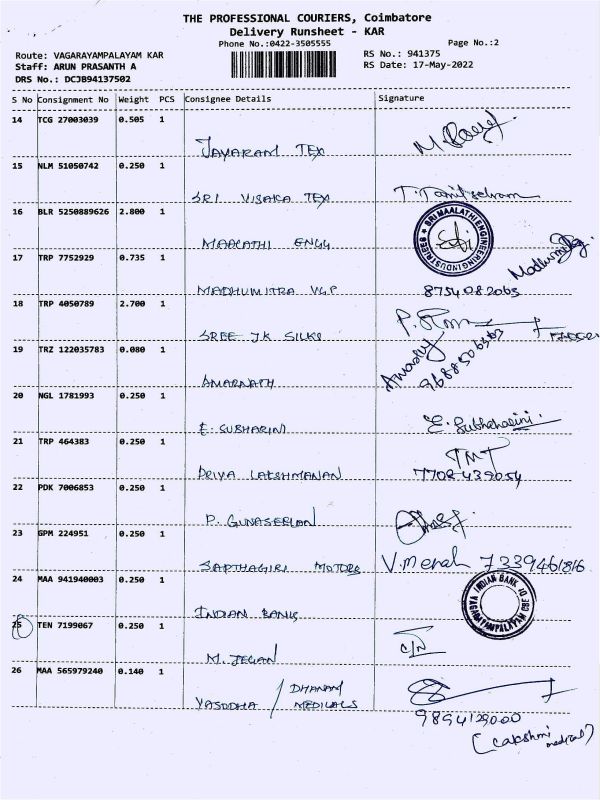 THE PROFESSIONAL COURIERS, Coimbatore
Delivery Runsheet - KAR
Phone No.:0422-3505555
Page No.:2
Route: VAGARAYAMPALAYAM KAR
RS No.: 941375
Staff: ARUN PRASANTH A
RS Date: 17-May-2022
DRS No.: DCJB94137502
S No Consignment No Weight PCS Consignee Details Signature
14 TCG 27003039 0.505 1
JAYARAM TEX
15 NLM 51050742 0.250 1
SRI VISAKA TEX T. Tamilselvam
16 BLR 5250889626 2.800 1
SRI MAALATHI ENGINEERING INDUSTRIES
MAALATHI ENGG
17 TRP 7752929 0.735 1
MADHUMITRA VGP 8754082063
18 TRP 4050789 2.700 1
SREE JK SILKS
19 TRZ 122035783 0.080 1
AMARNATH
20 NGL 1781993 0.250 1
E. SUBHARINI E. Subhaharini
21 TRP 464383 0.250 1
TMT
PRIYA LAKSHMANAN 7708439054
22 PDK 7006853 0.250 1
P. GUNASEELAN
23 GPM 224951 0.250 1
SAPTHAGIRI MOTORS V. Menah 7339461816
24 MAA 941940003 0.250 1
INDIAN BANK
VAGARAYAMPALAYAM CBE DT
INDIAN BANK
25 TEN 7199067 0.250 1
M. JEGAN
26 MAA 565979240 0.140 1
YASODHA / DHANAM MEDICALS
9894129000
(Lakshmi medical)